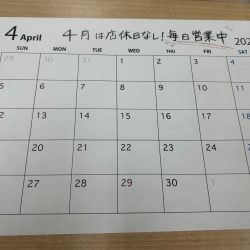 4 April 4月は店休日なし!毎日営業中 202
SUN MON TUE WED THU FRI SAT
29 30 31 1 2 3 4
5 6 7 8 9 10
12 13 14 15 16 17
19 20 21 22 23 24
26 27 28 29 30 1